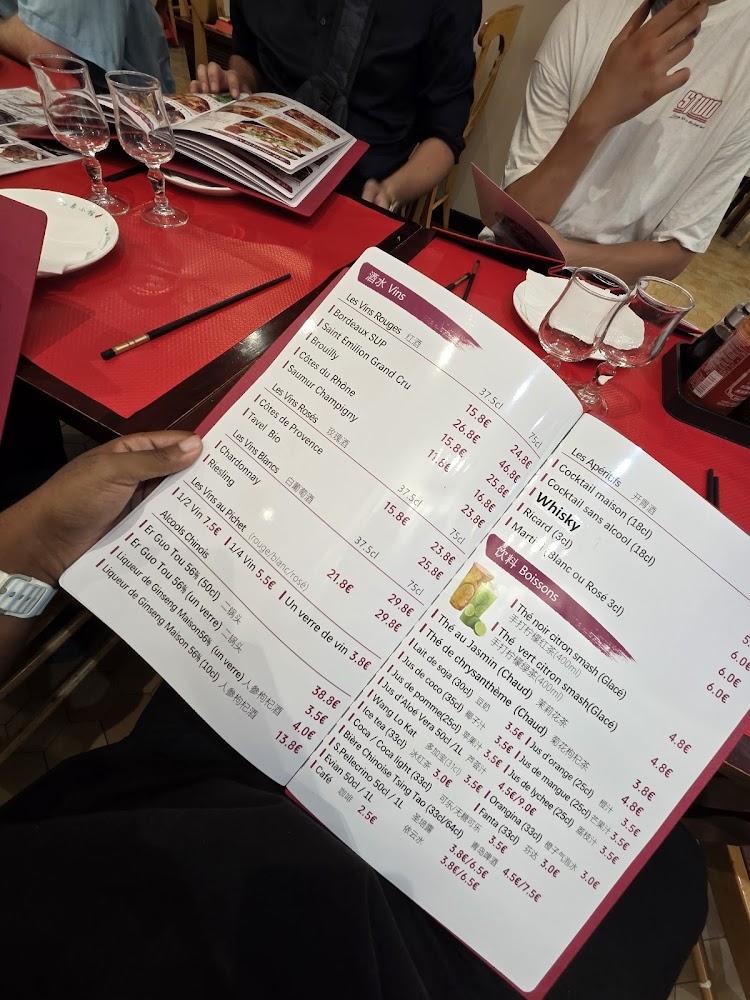 酒水 Vins
Les Vins Rouges 红酒 37.5cl 75cl
Bordeaux SUP 15.8€ 24.8€
Saint Emilion Grand Cru 26.8€ 46.8€
Brouilly 15.8€ 25.8€
Côtes du Rhône 11.8€ 16.8€
Saumur Champigny 23.8€
Les Vins Rosés 玫瑰酒 37.5cl 75cl
Côtes de Provence 15.8€ 23.8€
Tavel Bio 25.8€
Les Vins Blancs 白葡萄酒 37.5cl 75cl
Chardonnay 29.8€
Riesling 21.8€ 29.8€
Les Vins au Pichet (rouge/blanc/rosé)
1/2 Vin 7.5€ 1/4 Vin 5.5€ Un verre de vin 3.8€
Alcools Chinois
Er Guo Tou 56% (50cl) 二锅头 38.8€
Er Guo Tou 56% (un verre) 二锅头 3.5€
Liqueur de Ginseng Maison56% (un verre) 人参枸杞酒 4.0€
Liqueur de Ginseng Maison 56% (10cl) 人参枸杞酒 13.8€
Les Apéritifs 开胃酒
Cocktail maison (18cl)
Cocktail sans alcool (18cl) 6.0€
Whisky 6.0€
Ricard (3cl) 6.0€
Martini (Blanc ou Rosé 3cl)
饮料 Boissons
Thé noir citron smash (Glacé) 4.8€
手打柠檬红茶(400ml)
Thé vert citron smash(Glacé) 4.8€
手打柠檬绿茶(400ml)
Thé au Jasmin (Chaud) 茉莉花茶 3.8€
Thé de chrysanthème (Chaud) 菊花枸杞茶 4.8€
Lait de soja (30cl) 豆奶 3.5€
Jus d'orange (25cl) 橙汁 3.5€
Jus de coco (35cl) 椰子汁 3.5€
Jus de mangue (25cl) 芒果汁 3.5€
Jus de pomme(25cl) 苹果汁 3.5€
Jus de lychee (25cl) 荔枝汁 3.5€
Jus d'Aloé Vera 50cl/1L 芦荟汁 4.5€/9.0€
Wang Lo Kat 3.5€
Orangina (33cl) 橙子气泡水 3.0€
Ice tea (33cl) 冰红茶 3.0€
Fanta (33cl) 芬达 3.0€
Coca / Coca light (33cl) 可乐/无糖可乐 3.5€
Bière Chinoise Tsing Tao (33cl/64cl) 青岛啤酒 4.5€/7.5€
S.Pellecrino 50cl / 1L 圣培露 3.8€/6.5€
Evian 50cl / 1L 依云水 3.8€/6.5€
Café 咖啡 2.5€